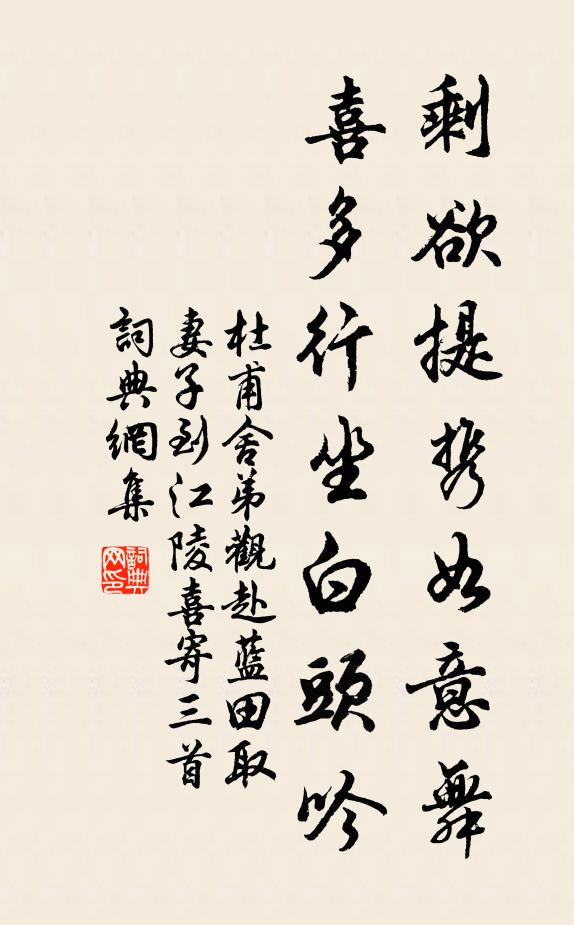 剩欲提携如意舞
喜多行坐白頭吟
杜甫舍弟觀赴藍田取
妻子到江陵喜寄三首
詞典網集
詞典
网印